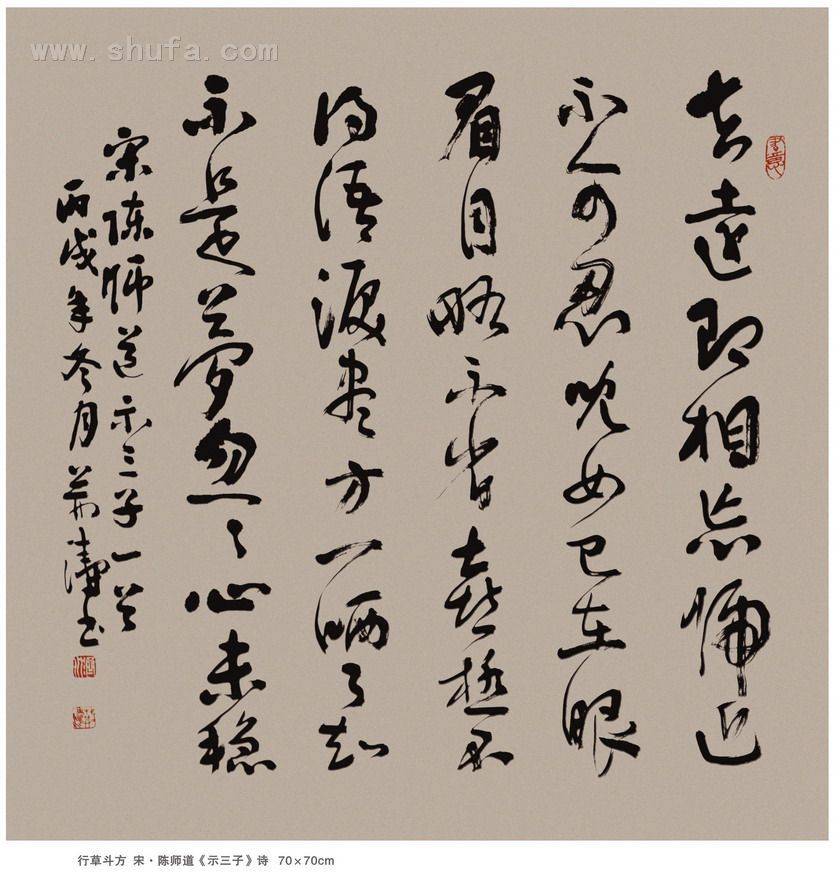 www.shufa.com
去遠即相忘歸近
不可忍兒女已在眼
眉目略不省喜極不
得語淚盡方一哂了知
不是夢忽々心未穩
宋陳師道示三子一首
丙戌年冬月 書
行草斗方 宋·陈师道《示三子》诗 70×70cm